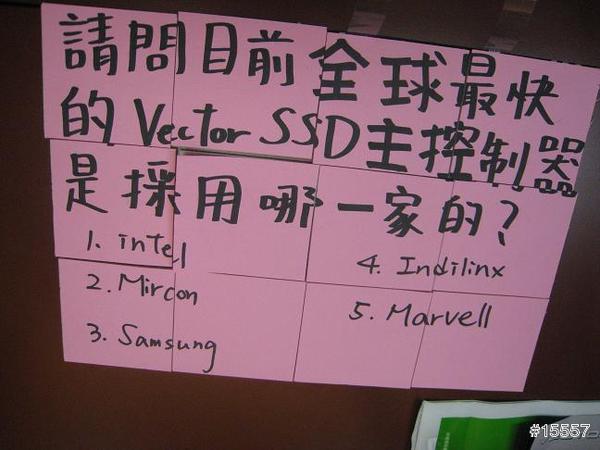 請問目前全球最快
的Vector SSD主控制器
是採用哪一家的?
1. intel
2. Mircon
3. Samsung
4. Indilinx
5. Marvell
#15557